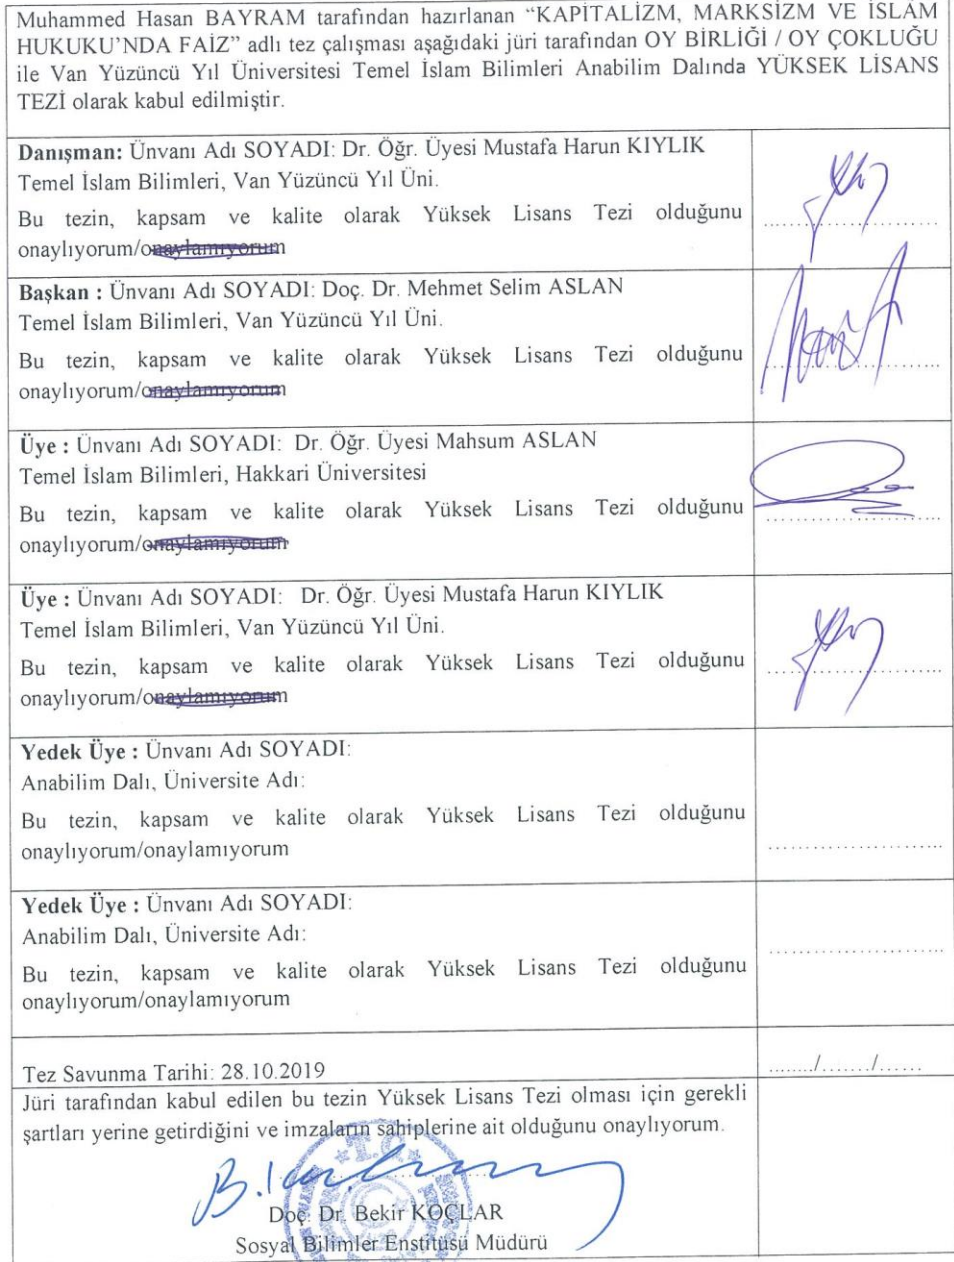 Muhammed Hasan BAYRAM tarafından hazırlanan “KAPİTALİZM, MARKSİZM VE İSLAM
HUKUKU’NDA FAİZ” adlı tez çalışması aşağıdaki jüri tarafından OY BİRLİĞİ / OY ÇOKLUĞU
ile Van Yüzüncü Yıl Üniversitesi Temel İslam Bilimleri Anabilim Dalında YÜKSEK LİSANS
TEZİ olarak kabul edilmiştir.
Danışman: Ünvanı Adı SOYADI: Dr. Öğr. Üyesi Mustafa Harun KIYLIK
Temel İslam Bilimleri, Van Yüzüncü Yıl Üni.
Bu tezin, kapsam ve kalite olarak Yüksek Lisans Tezi olduğunu
onaylıyorum/onaylamıyorum
Başkan : Ünvanı Adı SOYADI: Doç. Dr. Mehmet Selim ASLAN
Temel İslam Bilimleri, Van Yüzüncü Yıl Üni.
Bu tezin, kapsam ve kalite olarak Yüksek Lisans Tezi olduğunu
onaylıyorum/onaylamıyorum
Üye : Ünvanı Adı SOYADI: Dr. Öğr. Üyesi Mahsum ASLAN
Temel İslam Bilimleri, Hakkari Üniversitesi
Bu tezin, kapsam ve kalite olarak Yüksek Lisans Tezi olduğunu
onaylıyorum/onaylamıyorum
Üye : Ünvanı Adı SOYADI: Dr. Öğr. Üyesi Mustafa Harun KIYLIK
Temel İslam Bilimleri, Van Yüzüncü Yıl Üni.
Bu tezin, kapsam ve kalite olarak Yüksek Lisans Tezi olduğunu
onaylıyorum/onaylamıyorum
Yedek Üye : Ünvanı Adı SOYADI:
Anabilim Dalı, Üniversite Adı:
Bu tezin, kapsam ve kalite olarak Yüksek Lisans Tezi olduğunu
onaylıyorum/onaylamıyorum
Yedek Üye : Ünvanı Adı SOYADI:
Anabilim Dalı, Üniversite Adı:
Bu tezin, kapsam ve kalite olarak Yüksek Lisans Tezi olduğunu
onaylıyorum/onaylamıyorum
Tez Savunma Tarihi: 28.10.2019 ......../......./......
Jüri tarafından kabul edilen bu tezin Yüksek Lisans Tezi olması için gerekli
şartları yerine getirdiğini ve imzaların sahiplerine ait olduğunu onaylıyorum.
T.C.
Doç. Dr. Bekir KOÇLAR
Sosyal Bilimler Enstitüsü Müdürü